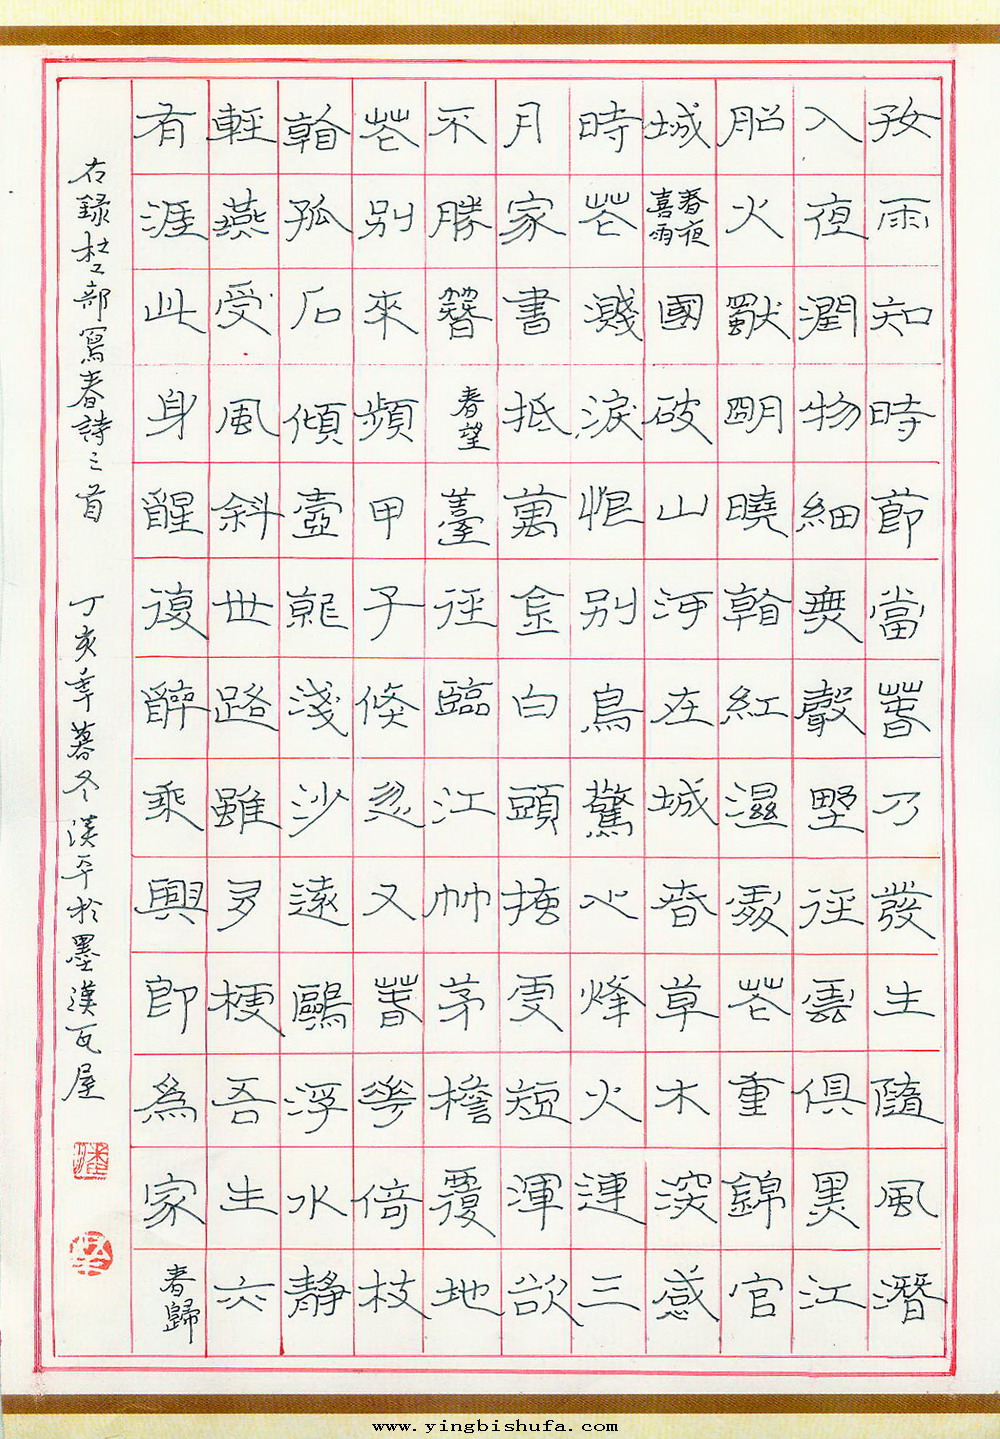 好雨知時節當春乃發生隨風潛
入夜潤物細無聲野徑雲俱黑江
船火獨明曉看紅濕處花重錦官
城 春夜喜雨 國破山河在城春草木深感
時花濺淚恨別鳥驚心烽火連三
月家書抵萬金白頭搔更短渾欲
不勝簪 春望 薹徑臨江竹茅檐覆地
花別來頻甲子倏忽又春華倚杖
看孤石傾壺就淺沙遠鷗浮水靜
輕燕受風斜世路雖多梗吾生亦
有涯此身醒復醉乘興即為家 春歸
右錄杜工部寫春詩三首 丁亥年暮冬漢平於墨漢瓦屋
潘
www.yingbishufa.com